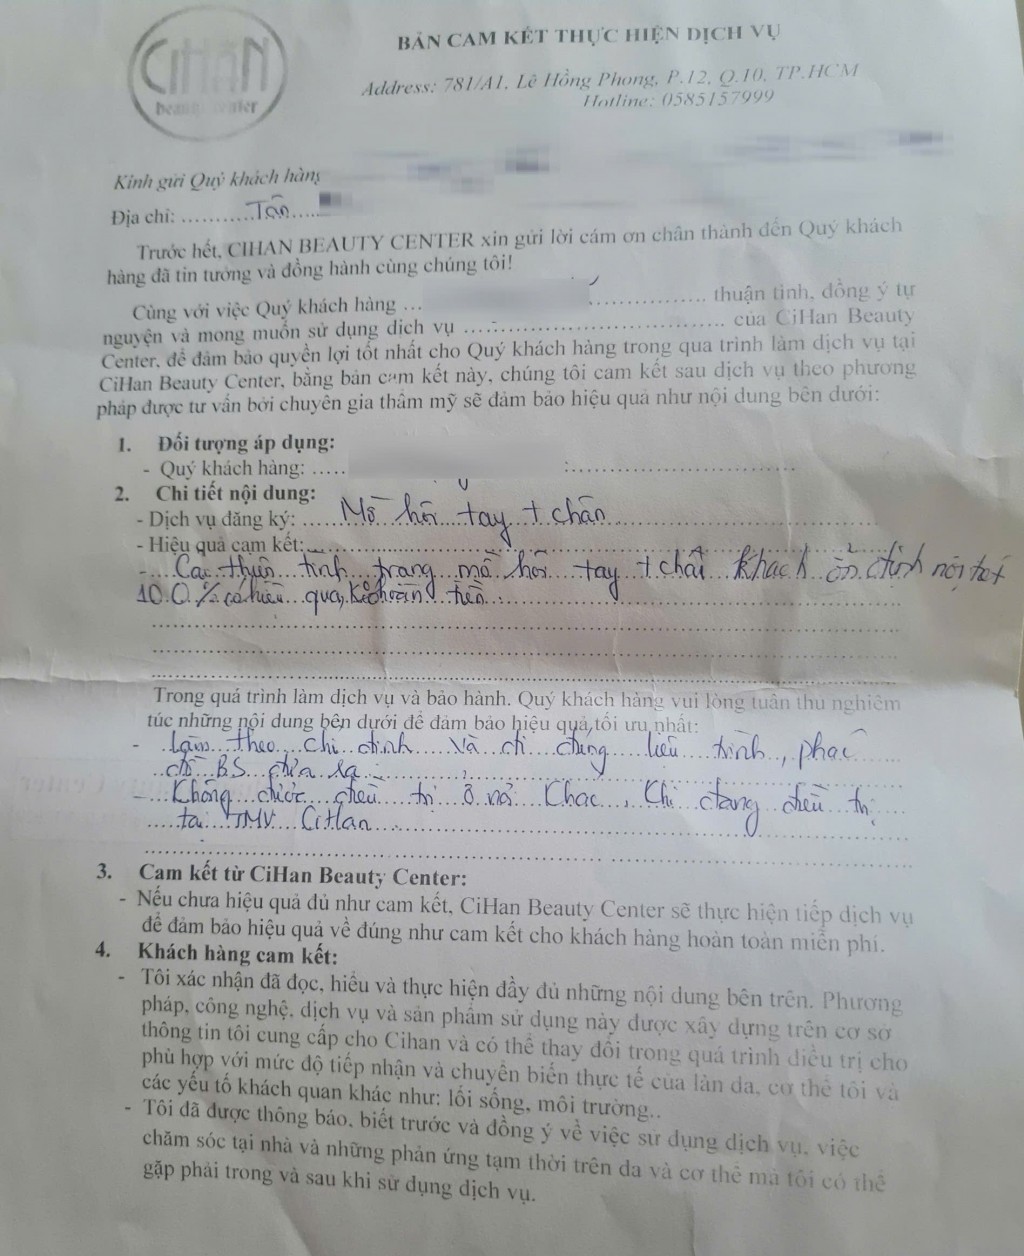 CiHAN
beauty center
BẢN CAM KẾT THỰC HIỆN DỊCH VỤ
Address: 781/A1, Lê Hồng Phong, P.12, Q.10, TP.HCM
Hotline: 0585157999
Kính gửi Quý khách hàng
Địa chỉ: ............Tân.....
Trước hết, CIHAN BEAUTY CENTER xin gửi lời cám ơn chân thành đến Quý khách
hàng đã tin tưởng và đồng hành cùng chúng tôi!
Cùng với việc Quý khách hàng ... .................. thuận tình, đồng ý tự
nguyện và mong muốn sử dụng dịch vụ .................................... của CiHan Beauty
Center, để đảm bảo quyền lợi tốt nhất cho Quý khách hàng trong qua trình làm dịch vụ tại
CiHan Beauty Center, bằng bản cam kết này, chúng tôi cam kết sau dịch vụ theo phương
pháp được tư vấn bởi chuyên gia thẩm mỹ sẽ đảm bảo hiệu quả như nội dung bên dưới:
1. Đối tượng áp dụng:
- Quý khách hàng: .....
2. Chi tiết nội dung:
- Dịch vụ đăng ký: .....Mồ hôi tay + chân
- Hiệu quả cam kết:
- tình trạng mồ hôi tay + chân khách ổn định
100% có hiệu quả, hoàn tiền
Trong quá trình làm dịch vụ và bảo hành. Quý khách hàng vui lòng tuân thu nghiêm
túc những nội dung bên dưới để đảm bảo hiệu quả tối ưu nhất:
- Làm theo chỉ định và đi đúng liệu trình, phác
đồ BS đưa ra
- Không được điều trị ở nơi khác, khi đang điều trị
tại TMV CiHan
3. Cam kết từ CiHan Beauty Center:
- Nếu chưa hiệu quả đủ như cam kết, CiHan Beauty Center sẽ thực hiện tiếp dịch vụ
để đảm bảo hiệu quả về đúng như cam kết cho khách hàng hoàn toàn miễn phí.
4. Khách hàng cam kết:
- Tôi xác nhận đã đọc, hiểu và thực hiện đầy đủ những nội dung bên trên. Phương
pháp, công nghệ, dịch vụ và sản phẩm sử dụng này được xây dựng trên cơ sở
thông tin tôi cung cấp cho Cihan và có thể thay đổi trong quá trình điều trị cho
phù hợp với mức độ tiếp nhận và chuyển biến thực tế của làn da, cơ thể tôi và
các yếu tố khách quan khác như: lối sống, môi trường..
- Tôi đã được thông báo, biết trước và đồng ý về việc sử dụng dịch vụ, việc
chăm sóc tại nhà và những phản ứng tạm thời trên da và cơ thể mà tôi có thể
gặp phải trong và sau khi sử dụng dịch vụ.